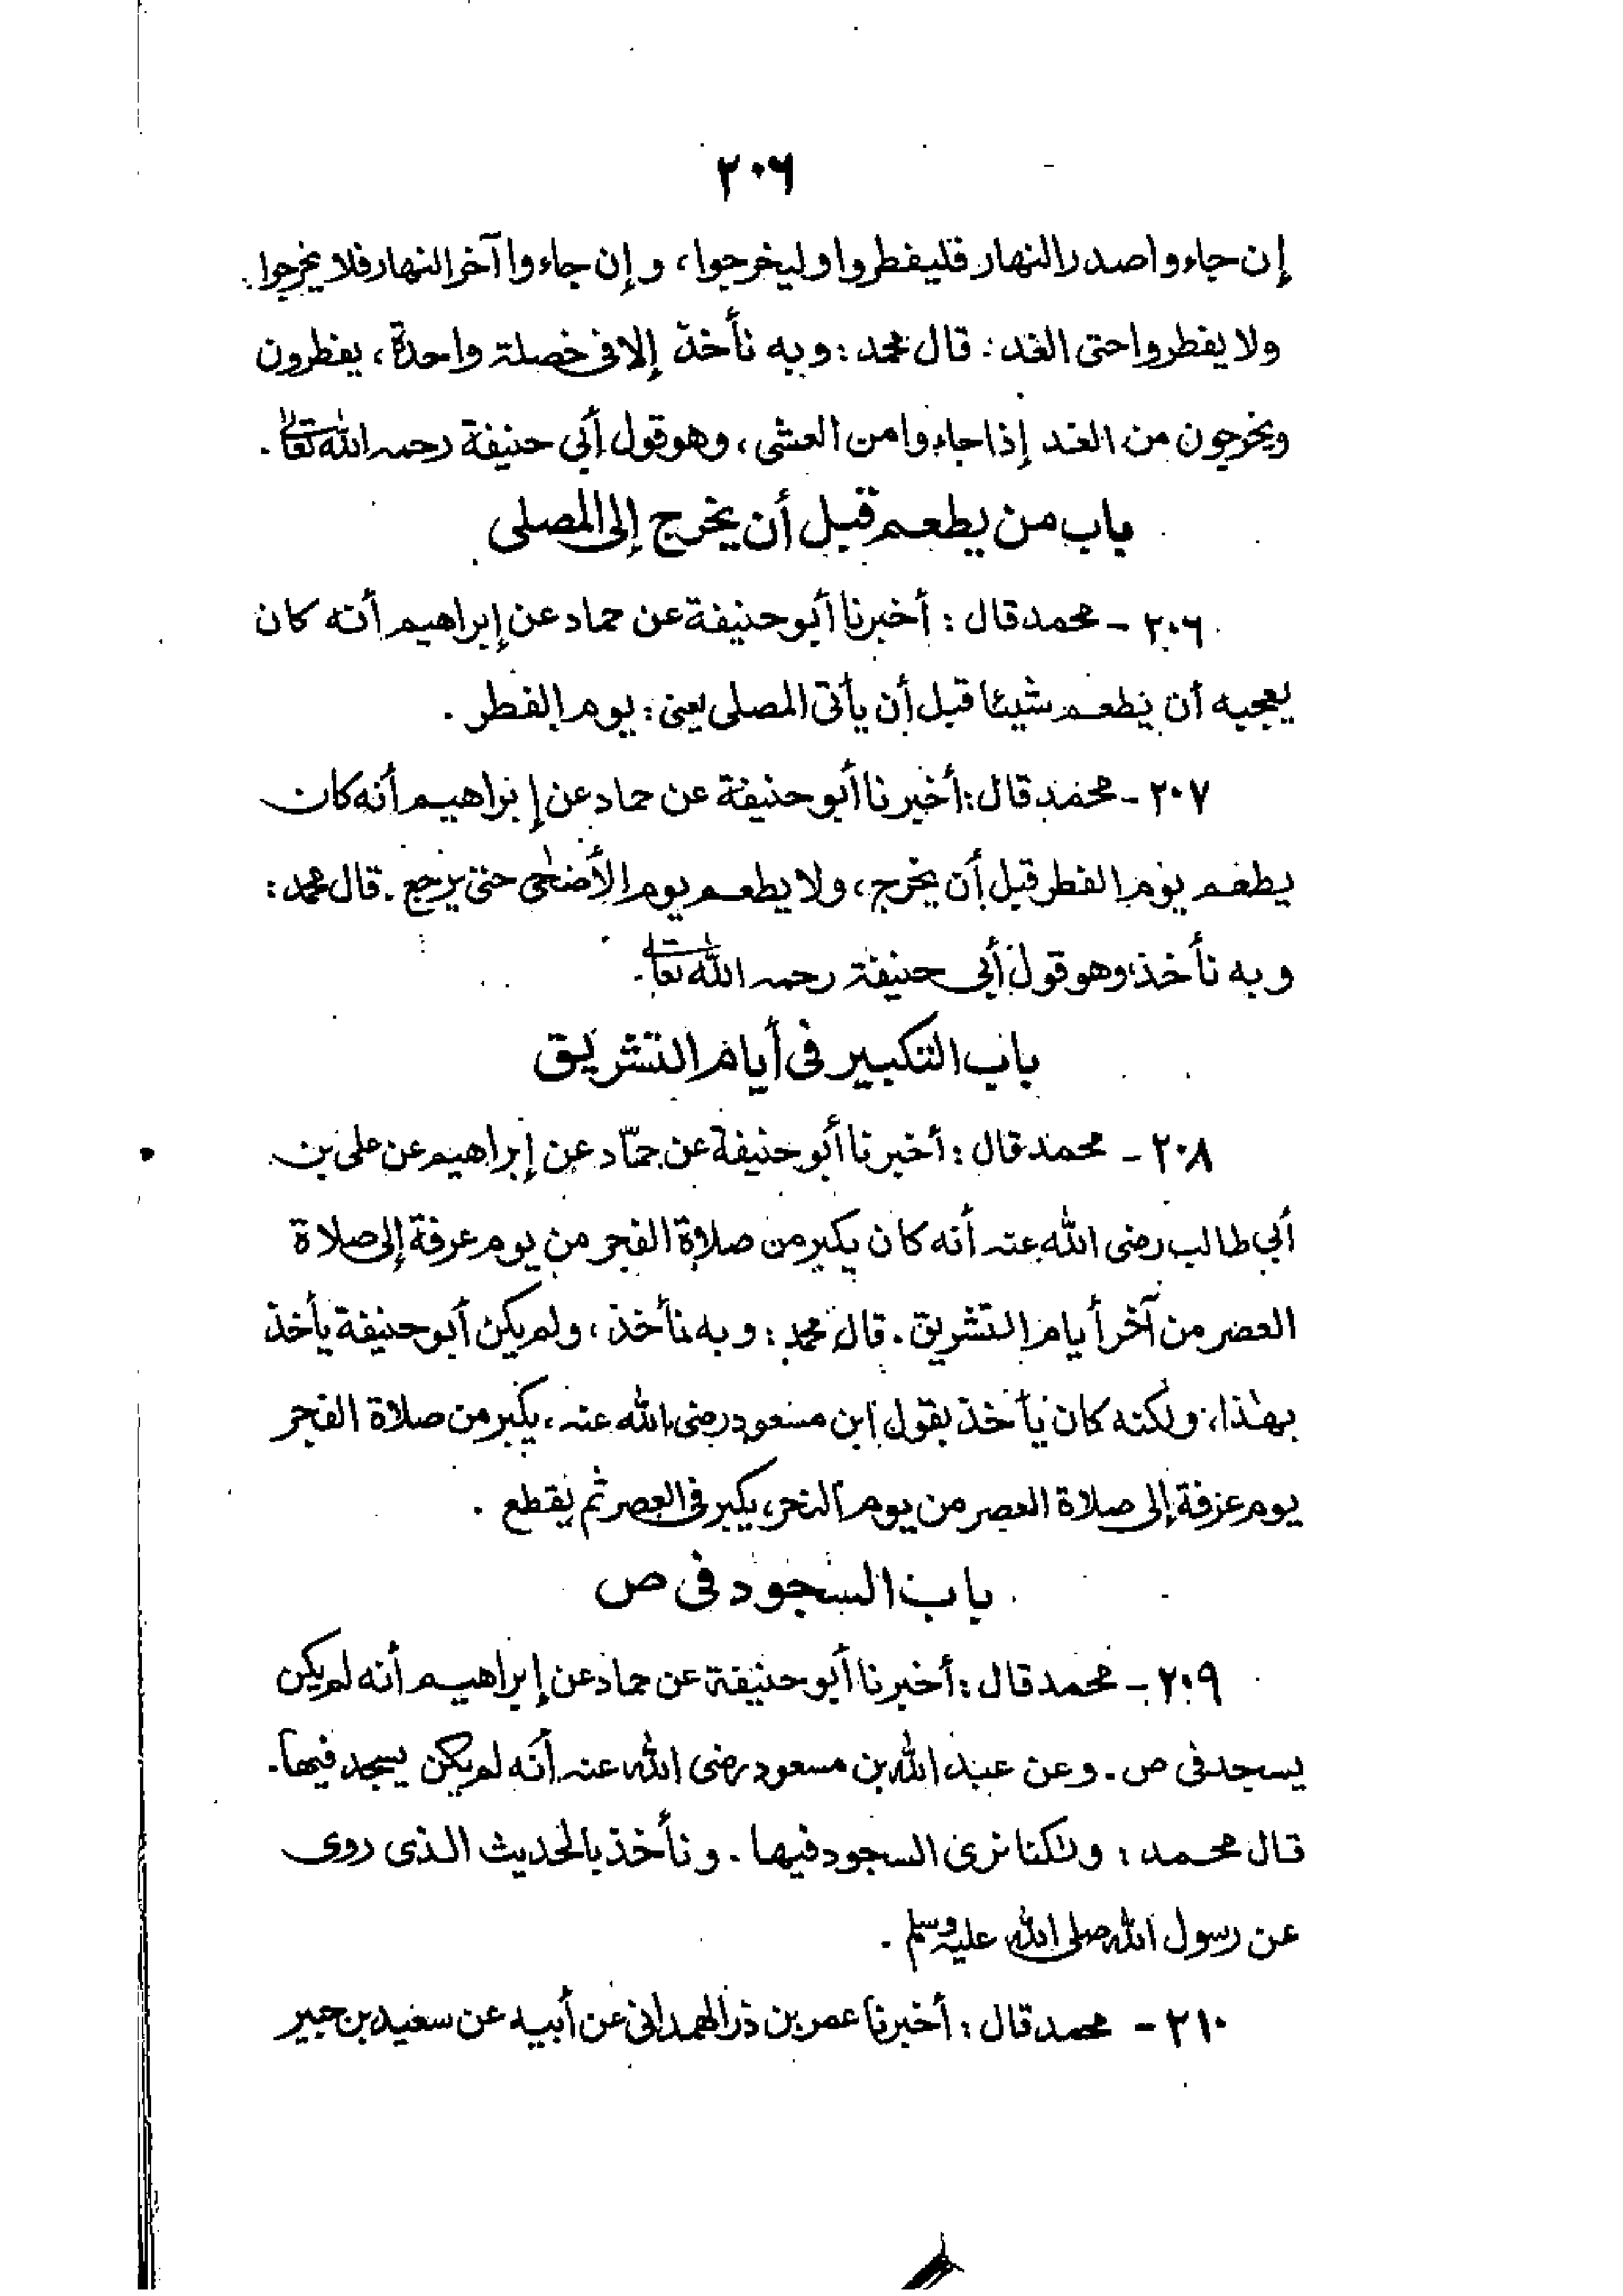 ٢٠٦
إن جاءوا صدر النهار فليفطروا وليخرجوا، وإن جاءوا آخر النهار فلا يخرجوا
ولا يفطروا حتى الغد. قال محمد: وبه نأخذ إلا فى خصلة واحدة، يفطرون
ويخرجون من الغد إذا جاءوا من العشى، وهو قول أبي حنيفة رحمه الله تعالى.
باب من يطعم قبل أن يخرج إلى المصلى
٢٠٦ - محمد قال: أخبرنا أبو حنيفة عن حماد عن إبراهيم أنه كان
يعجبه أن يطعم شيئا قبل أن يأتى المصلى يعنى: يوم الفطر.
٢٠٧ - محمد قال: أخبرنا أبو حنيفة عن حماد عن إبراهيم أنه كان
يطعم يوم الفطر قبل أن يخرج، ولا يطعم يوم الأضحى حتى يرجع. قال محمد:
وبه نأخذ وهو قول أبي حنيفة رحمه الله تعالى.
باب التكبير فى أيام التشريق
٢٠٨ - محمد قال: أخبرنا أبو حنيفة عن حمّاد عن إبراهيم عن على بن
أبي طالب رضى الله عنه أنه كان يكبر من صلاة الفجر من يوم عرفة إلى صلاة
العصر من آخر أيام التشريق. قال محمد: وبه نأخذ، ولم يكن أبو حنيفة يأخذ
بهذا، ولكنه كان يأخذ بقول ابن مسعود رضى الله عنه، يكبر من صلاة الفجر
يوم عرفة إلى صلاة العصر من يوم النحر، يكبر فى العصر ثم يقطع.
باب السجود فى ص
٢٠٩ - محمد قال: أخبرنا أبو حنيفة عن حماد عن إبراهيم أنه لم يكن
يسجد فى ص. وعن عبد الله بن مسعود رضى الله عنه أنه لم يكن يسجد فيها.
قال محمد: ولكنا نرى السجود فيها. ونأخذ بالحديث الذى روى
عن رسول الله صلى الله عليه وسلم.
٢١٠ - محمد قال: أخبرنا عمر بن ذر الهمدانى عن أبيه عن سعيد بن جبير